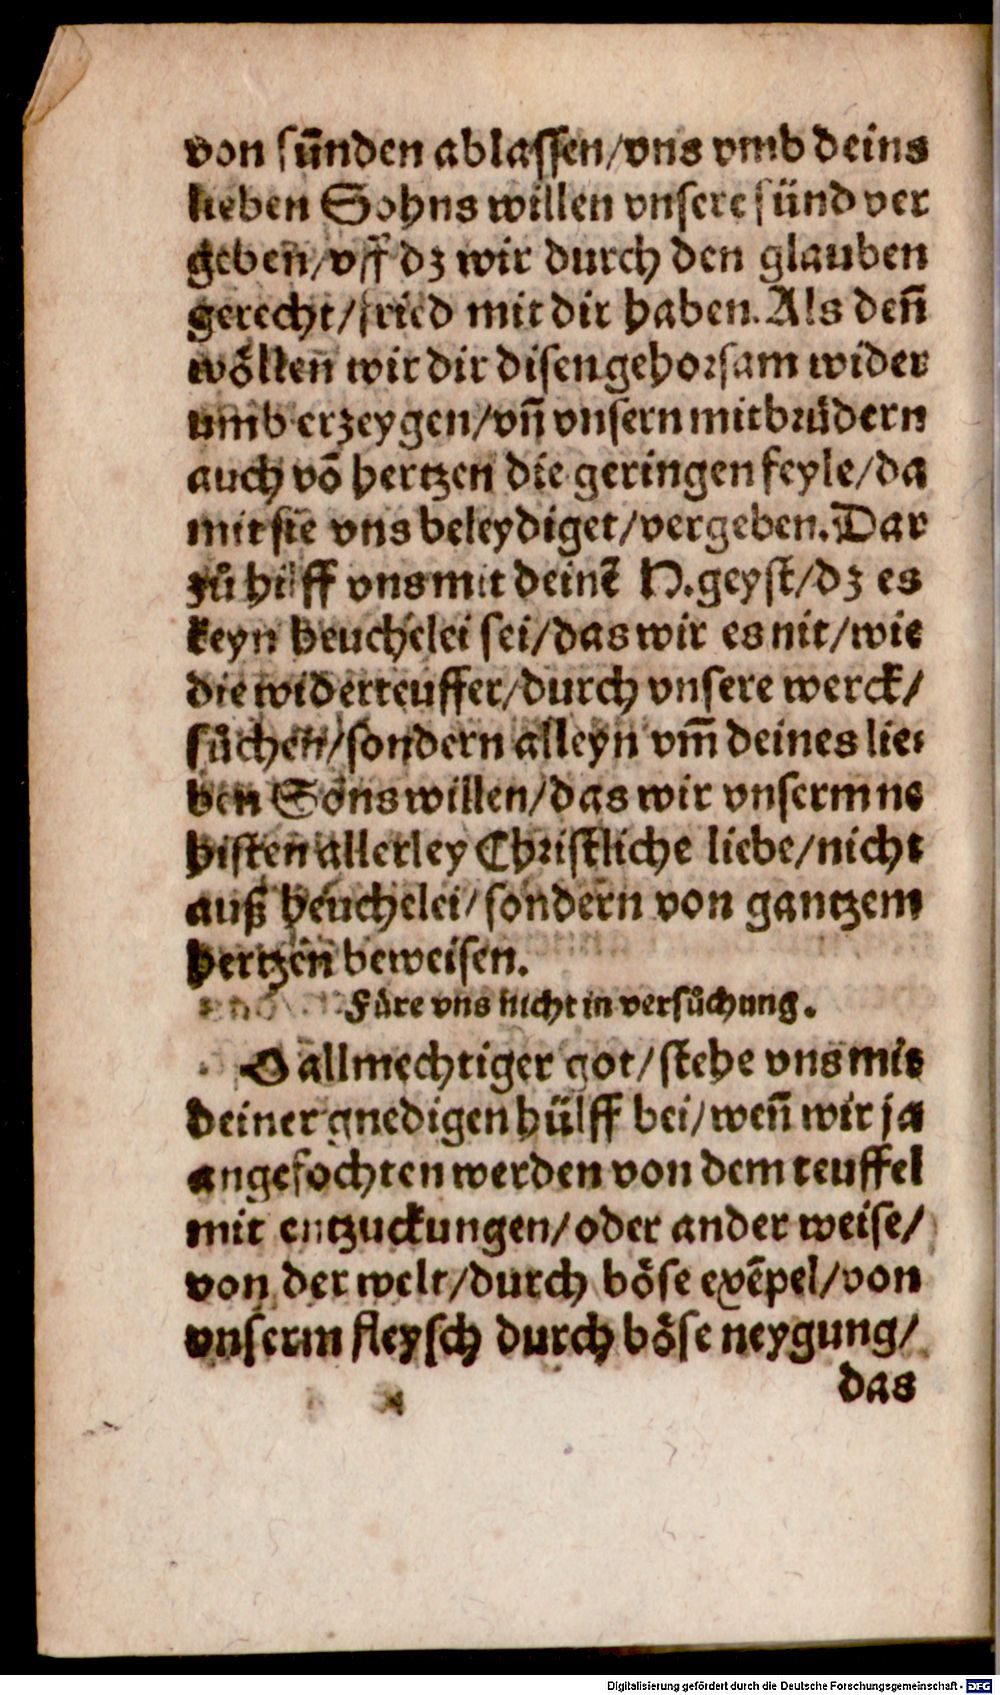 von sünden ablassen/vns vmb deins
lieben Sohns willen vnsere sünd ver
geben/vff dz wir durch den glauben
gerecht/fried mit dir haben. Als deñ
wöllen wir dir disen gehorsam wider
umb erzeygen/vñ vnsern mitbrüdern
auch võ hertzen die geringen feyle/da
mit sie vns beleydiget/vergeben. Dar
zů hilff vns mit deinẽ H. geyst/dz es
keyn heuchelei sei/das wir es nit/wie
die widerteuffer/durch vnsere werck/
sůchen/sondern alleyn vm̃ deines lie-
ben Sons willen/das wir vnserm ne
histen allerley Christliche liebe/nicht
auß heuchelei/sondern von gantzem
hertzen beweisen.
Füre vns nicht in versůchung.
O allmechtiger got/stehe vns mit
deiner gnedigen hülff bei/weñ wir ja
angefochten werden von dem teuffel
mit entzuckungen/oder ander weise/
von der welt/durch böse exẽpel/von
vnserm fleysch durch böse neygung/
das
Digitalisierung gefördert durch die Deutsche Forschungsgemeinschaft - DFG